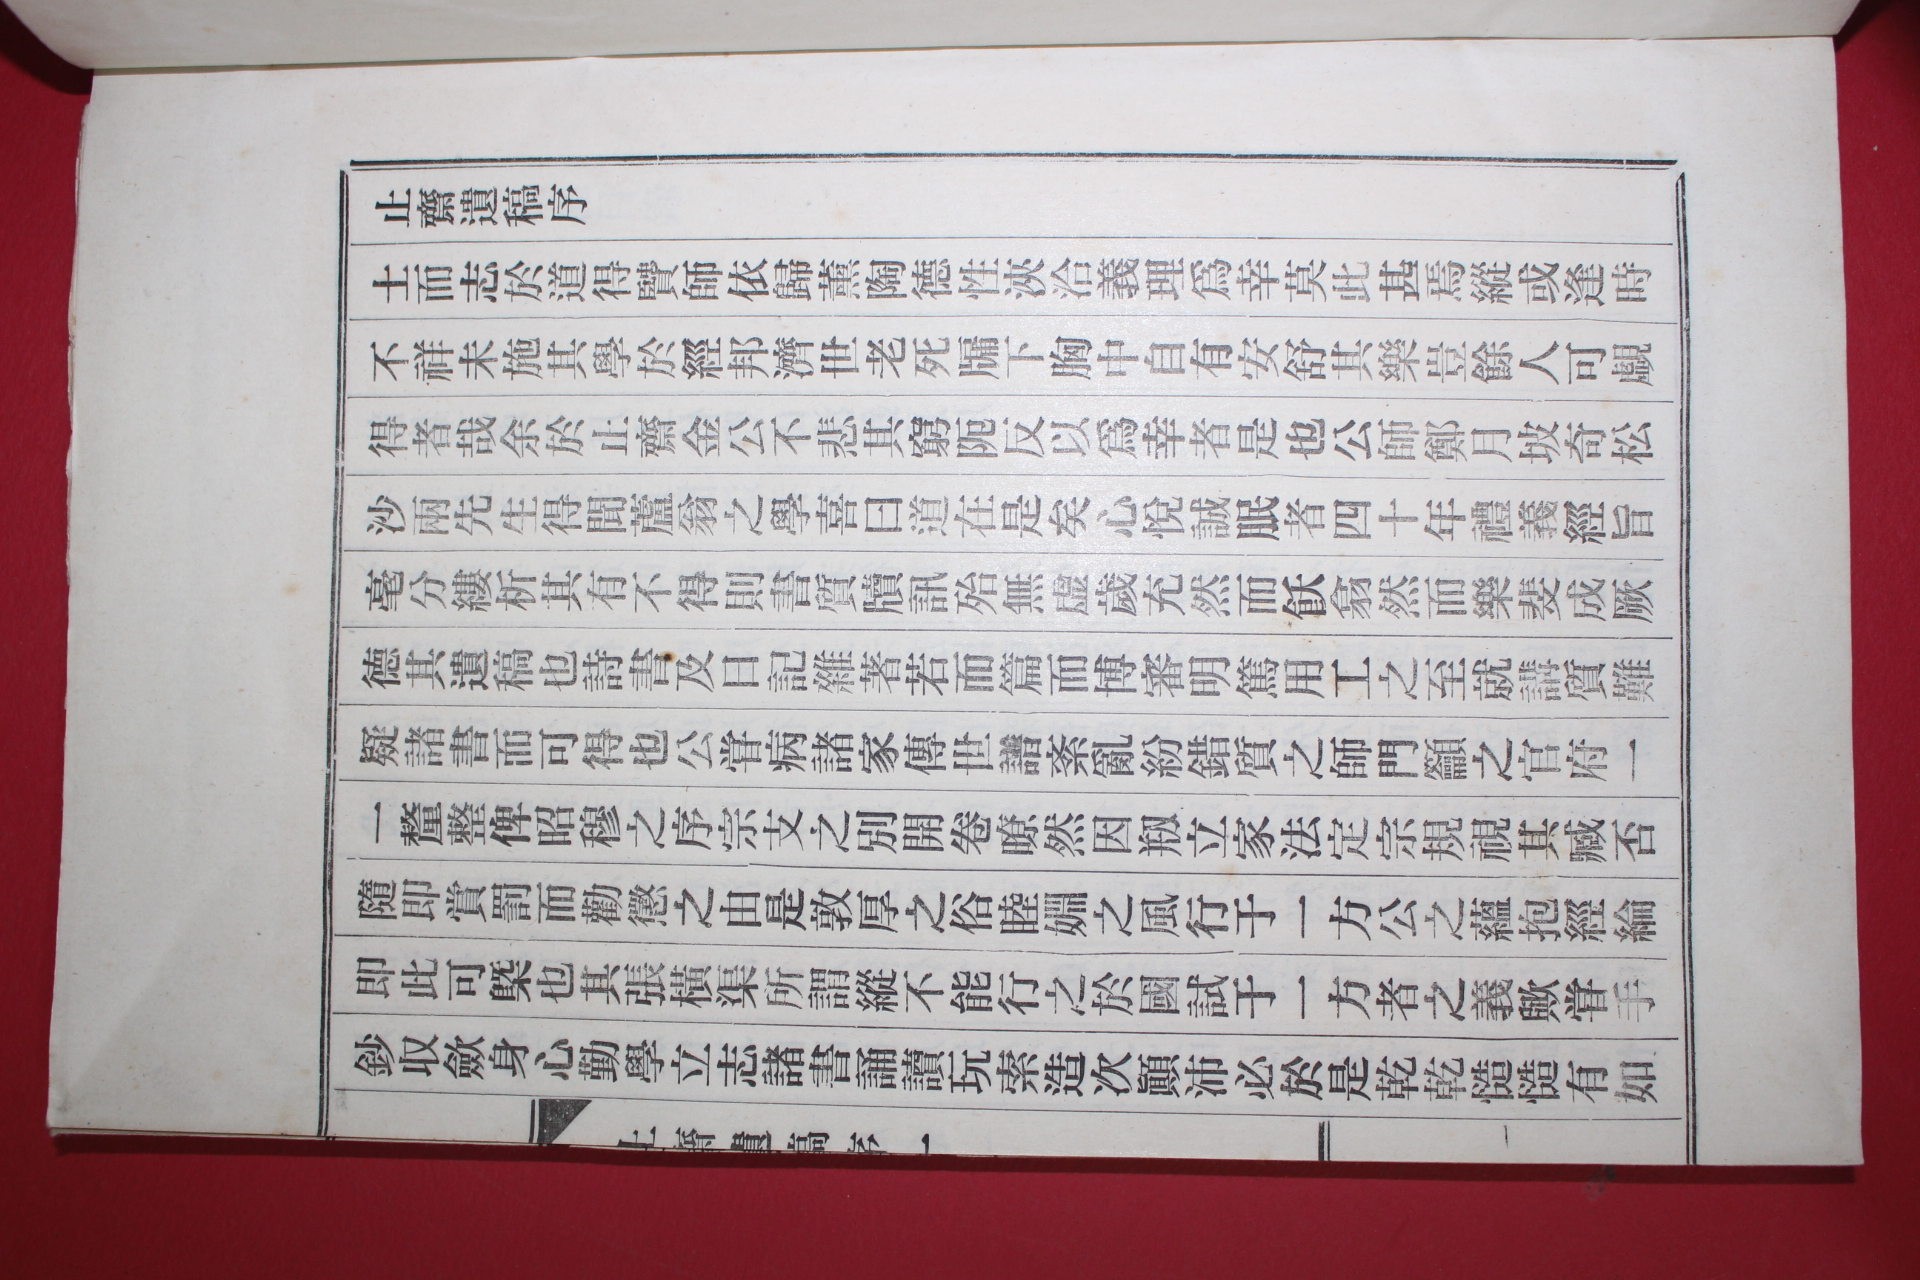 止齋遺稿序
士而志於道得賢師依歸薰陶德性浹洽義理爲幸莫此甚焉縱或逢時
不祥未施其學於經邦濟世老死牖下胸中自有安舒其樂豈餘人可覷
得者哉余於止齋金公不悲其窮阨反以爲幸者是也公師鄭月坡奇松
沙兩先生得聞蘆翁之學喜曰道在是矣心悅誠服者四十年禮義經旨
毫分縷析其有不得則書質牘訊殆無虛歲充然而飫翕然而樂斐成厥
德其遺稿也詩書及日記雜著若而篇而博審明篤用工之至就講質難
疑諸書而可得也公甞病諸家傳世譜紊亂紛錯質之師門籲之官府一
一釐整俾昭穆之序宗支之別開卷瞭然因刱立家法定宗規視其臧否
隨即賞罰而勸懲之由是敦厚之俗睦婣之風行于一方公之蘊抱經綸
即此可槩也其張橫渠所謂縱不能行之於國試于一方者之義歟甞手
鈔收斂身心勤學立志諸書誦讀玩索造次顚沛必於是乾乾慥慥有如
止齋遺稿序 一